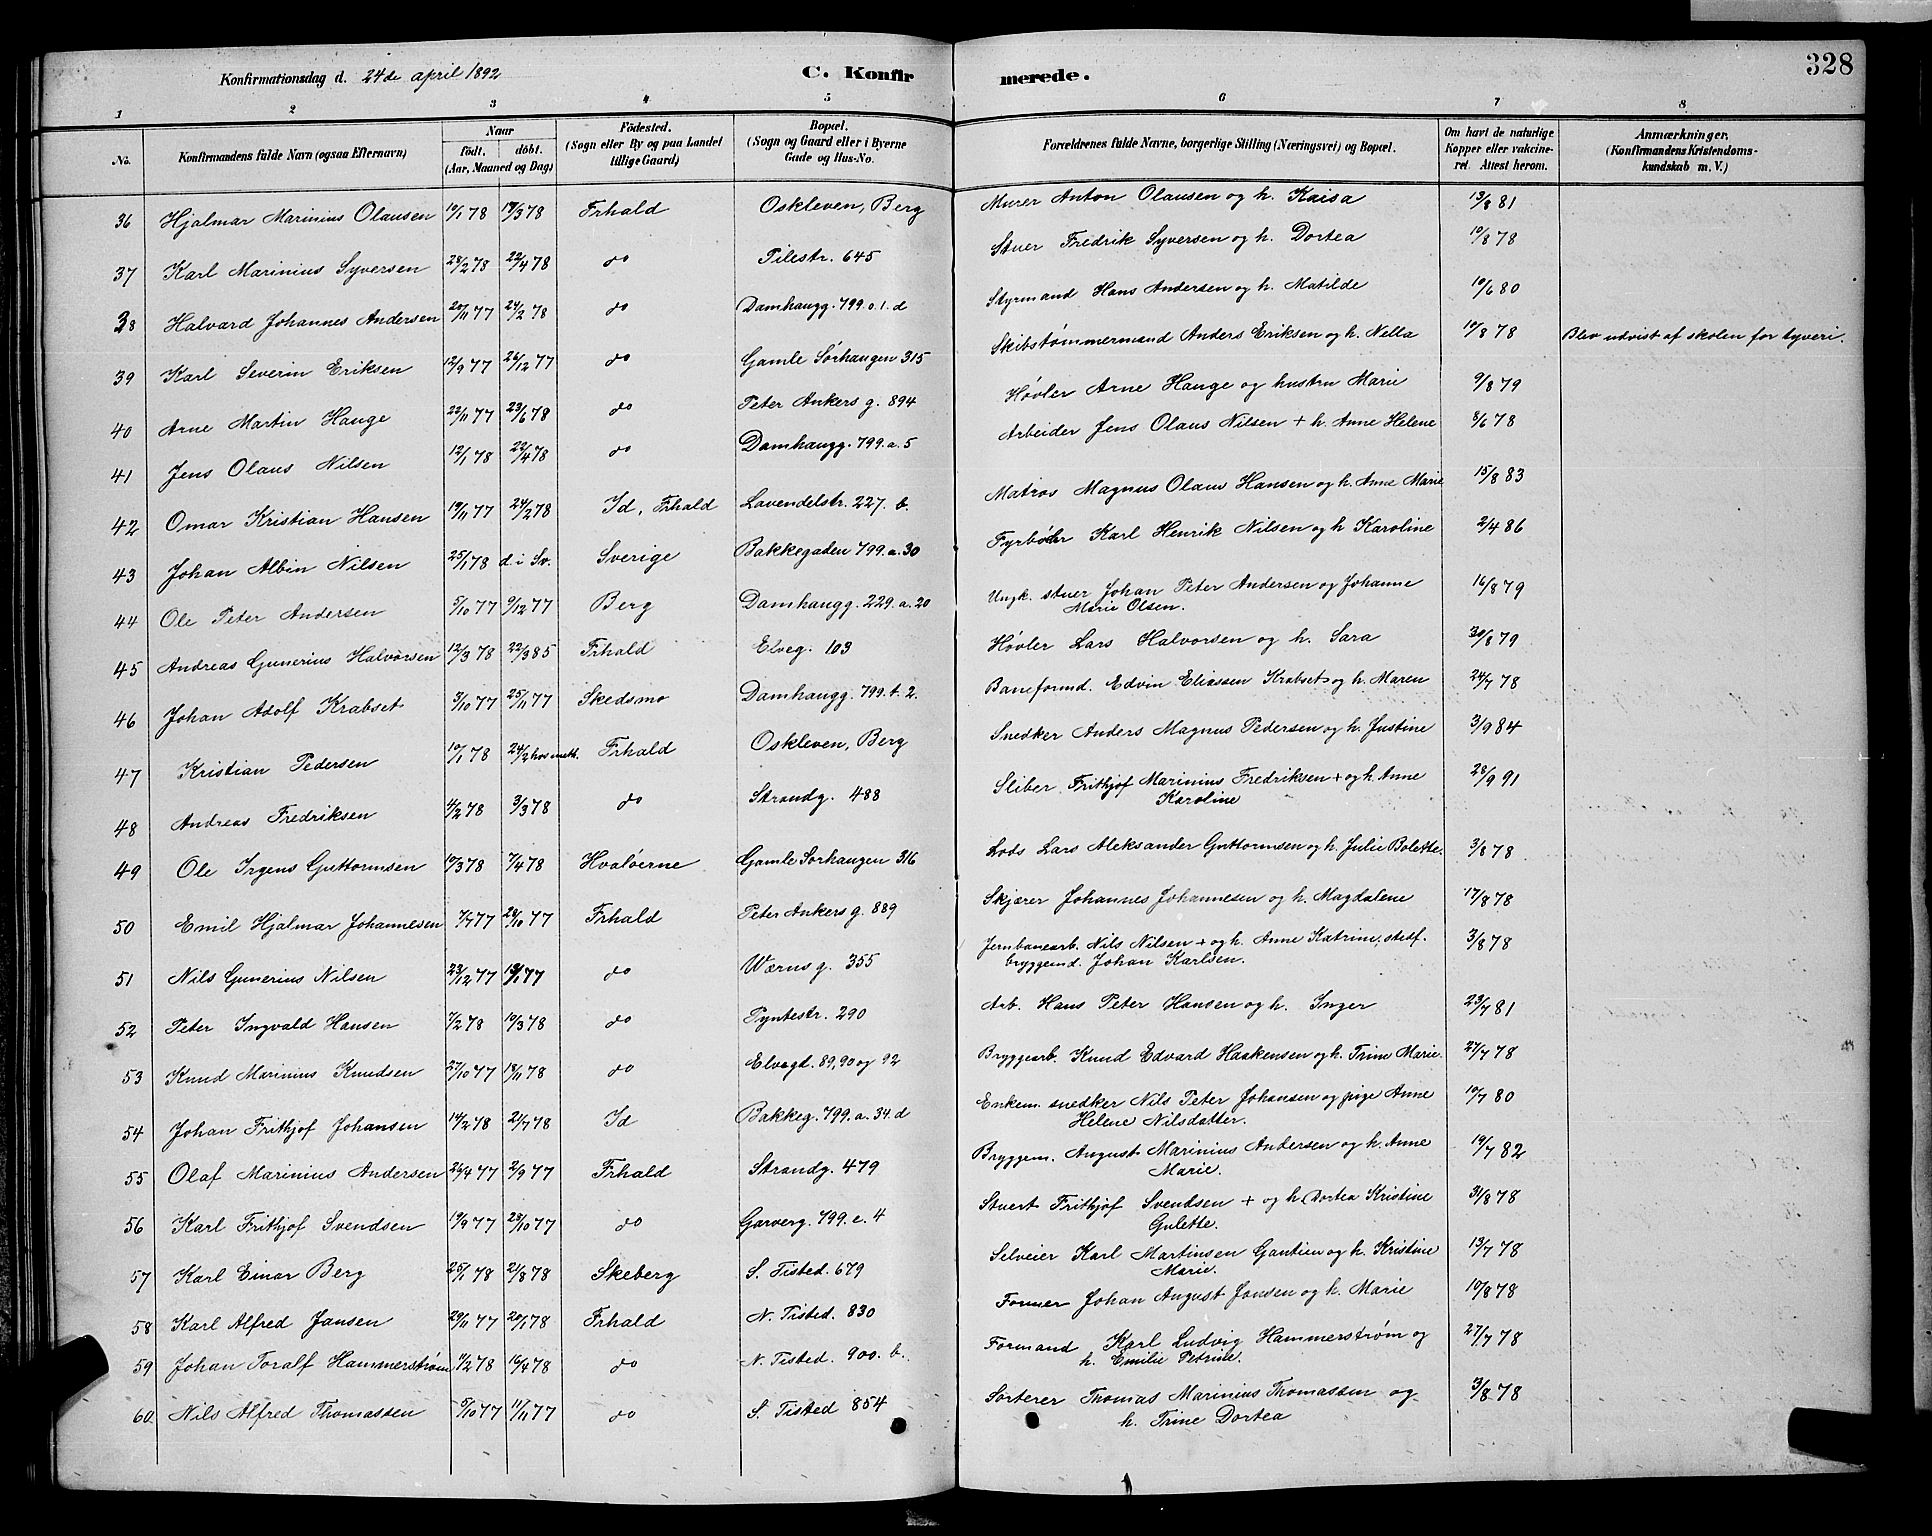 328
Konfirmationsdag d. 24de april 1892 C. Konfirmerede.
1 2 3 4 5 6 7 8
No. Konfirmandens fulde Navn (ogsaa Efternavn) Naar født, døbt. (Aar, Maaned og Dag) Födested. (Sogn eller By og paa Landet tillige Gaard) Bopæl. (Sogn og Gaard eller i Byerne Gade og Hus-No. Forældrenes fulde Navne, borgerlige Stilling (Næringsvei) og Bopæl. Om havt de naturlige Kopper eller vakcineret. Attest herom. Anmærkninger, (Konfirmandens Kristendomskundskab m. V.)
36 Hjalmar Marinius Olausen 10/1 78 17/3 78 Frhald Oskleven, Berg Murer Anton Olausen og h. Kaisa 13/8 81
37 Karl Marinius Syversen 24/2 78 22/4 78 do Pilestr. 645 Stuer Fredrik Syversen og h. Dortea 10/8 78
38 Halvard Johannes Andersen 20/11 77 24/2 78 do Damhaugg. 799.o.1.d Styrmand Hans Andersen og h. Matilde 10/6 80
39 Karl Severin Eriksen 12/9 77 26/12 77 do Gamle Sørhaugen 315 Skibstømmermand Anders Eriksen og h. Nella 10/8 78 Blev udvist af skolen for tyveri.
40 Arne Martin Hauge 22/11 77 23/6 78 do Peter Ankers g. 894 Høvler Arne Hauge og hustru Marie 9/8 79
41 Jens Olaus Nilsen 12/1 78 22/4 78 do Damhaugg. 799.a.5 Arbeider Jens Olaus Nilsen + h. Anne Helene 8/6 78
42 Omar Kristian Hansen 19/11 77 24/2 78 Id, Frhald Lavendelstr. 227. b. Matros Magnus Olaus Hansen og h. Anne Marie 15/8 83
43 Johan Albin Nilsen 25/1 78 d. i Sv. Sverige Bakkegaden 799.a.30 Fyrbøder Karl Henrik Nilsen og h Karoline 2/4 86
44 Ole Peter Andersen 5/10 77 9/12 77 Berg Damhaugg. 229.a.20 Ungk. stuer Johan Peter Andersen og Johanne Marie Olsen. 16/8 79
45 Andreas Gunerius Halvorsen 12/3 78 22/3 85 Frhald Elveg. 103 Høvler Lars Halvorsen og h. Sara 30/8 79
46 Johan Adolf Krabset 3/10 77 25/11 77 Skedsmo Damhaugg. 799.b.2. Baneformd. Edvin Eliassen Krabset og h. Maren 24/7 78
47 Kristian Pedersen 10/1 78 24/2 hos meth. Frhald Oskleven, Berg Snedker Anders Magnus Pedersen og h. Justine 3/9 84
48 Andreas Fredriksen 4/2 78 3/3 78 do Strandg. 488 Sliber Frithjof Marinius Fredriksen + og h. Anne Karoline 28/9 91
49 Ole Irgens Guttormsen 10/3 78 7/4 78 Hvaløerne Gamle Sørhaugen 316 Lods Lars Aleksander Guttormsen og h. Julie Bolette. 3/8 78
50 Emil Hjalmar Johannesen 7/7 77 28/10 77 Frhald Peter Ankers g. 889 Skjærer Johannes Johannesen og h. Magdalene 17/8 78
51 Nils Gunerius Nilsen 23/12 77 do Wærns g. 355 Jernbanearb. Nils Nilsen + og h. Anne Katrine, stedf. bryggemd. Johan Karlsen. 3/8 78
52 Peter Ingvald Hansen 7/2 78 10/3 78 do Pyntestr. 290 Arb. Hans Peter Hansen og h. Inger 23/7 81
53 Knud Marinius Knudsen 27/10 77 18/11 78 do Elvegt. 89, 90 og 92 Bryggearb. Knud Edvard Haakensen og h. Trine Marie. 27/7 78
54 Johan Frithjof Johansen 14/2 78 21/7 78 Id Bakkeg. 799.a.34.d Enkem. snedker Nils Peter Johansen og pige Anne Helene Nilsdatter. 10/7 80
55 Olaf Marinius Andersen 26/4 77 2/9 77 Frhald Strandg. 479 Bryggem. August Marinius Andersen og h. Anne Marie. 19/7 82
56 Karl Frithjof Svendsen 19/9 77 28/10 77 do Garverg. 799.e.4 Stuert Frithjof Svendsen + og h. Dortea Kristine Gulette. 31/8 78
57 Karl Einar Berg 25/1 78 2/8 78 Skeberg S. Tisted. 679 Selveier Karl Martinsen Gantien og h. Kristine Marie. 13/7 78
58 Karl Alfred Jansen 29/11 77 20/1 78 Frhald N. Tisted. 830 Former Johan August Jonsen og h. Marie 10/8 78
59 Johan Toralf Hammerstrøm 11/2 78 16/4 78 do N. Tisted. 900. b. Formand Karl Ludvig Hammerstrøm og h. Emilie Petrine. 27/7 78
60 Nils Alfred Thomassen 5/10 77 11/11 77 do S. Tisted 854 Sorterer Thomas Marinius Thomassen og h. Trine Dortea 3/8 78